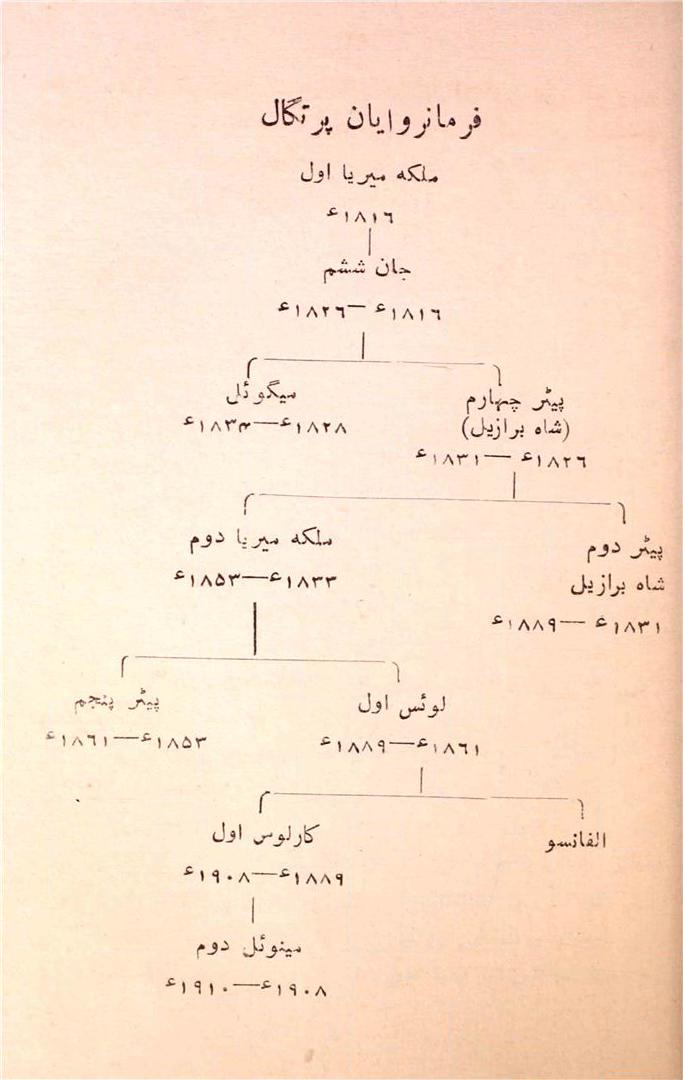 فرمانروایان پرتگال
ملکہ میریا اول
۱۸۱٦ء
جان ششم
۱۸۱٦ء — ۱۸۲٦ء
پیٹر چہارم
(شاہ برازیل)
۱۸۲٦ء — ۱۸۳۱ء
میگوئل
۱۸۲۸ء — ۱۸۳۴ء
پیٹر دوم
شاہ برازیل
۱۸۳۱ء — ۱۸۸۹ء
ملکہ میریا دوم
۱۸۳۳ء — ۱۸۵۳ء
لوئس اول
۱۸٦۱ء — ۱۸۸۹ء
پیٹر پنجم
۱۸۵۳ء — ۱۸٦۱ء
الفانسو
کارلوس اول
۱۸۸۹ء — ۱۹۰۸ء
مینوئل دوم
۱۹۰۸ء — ۱۹۱۰ء